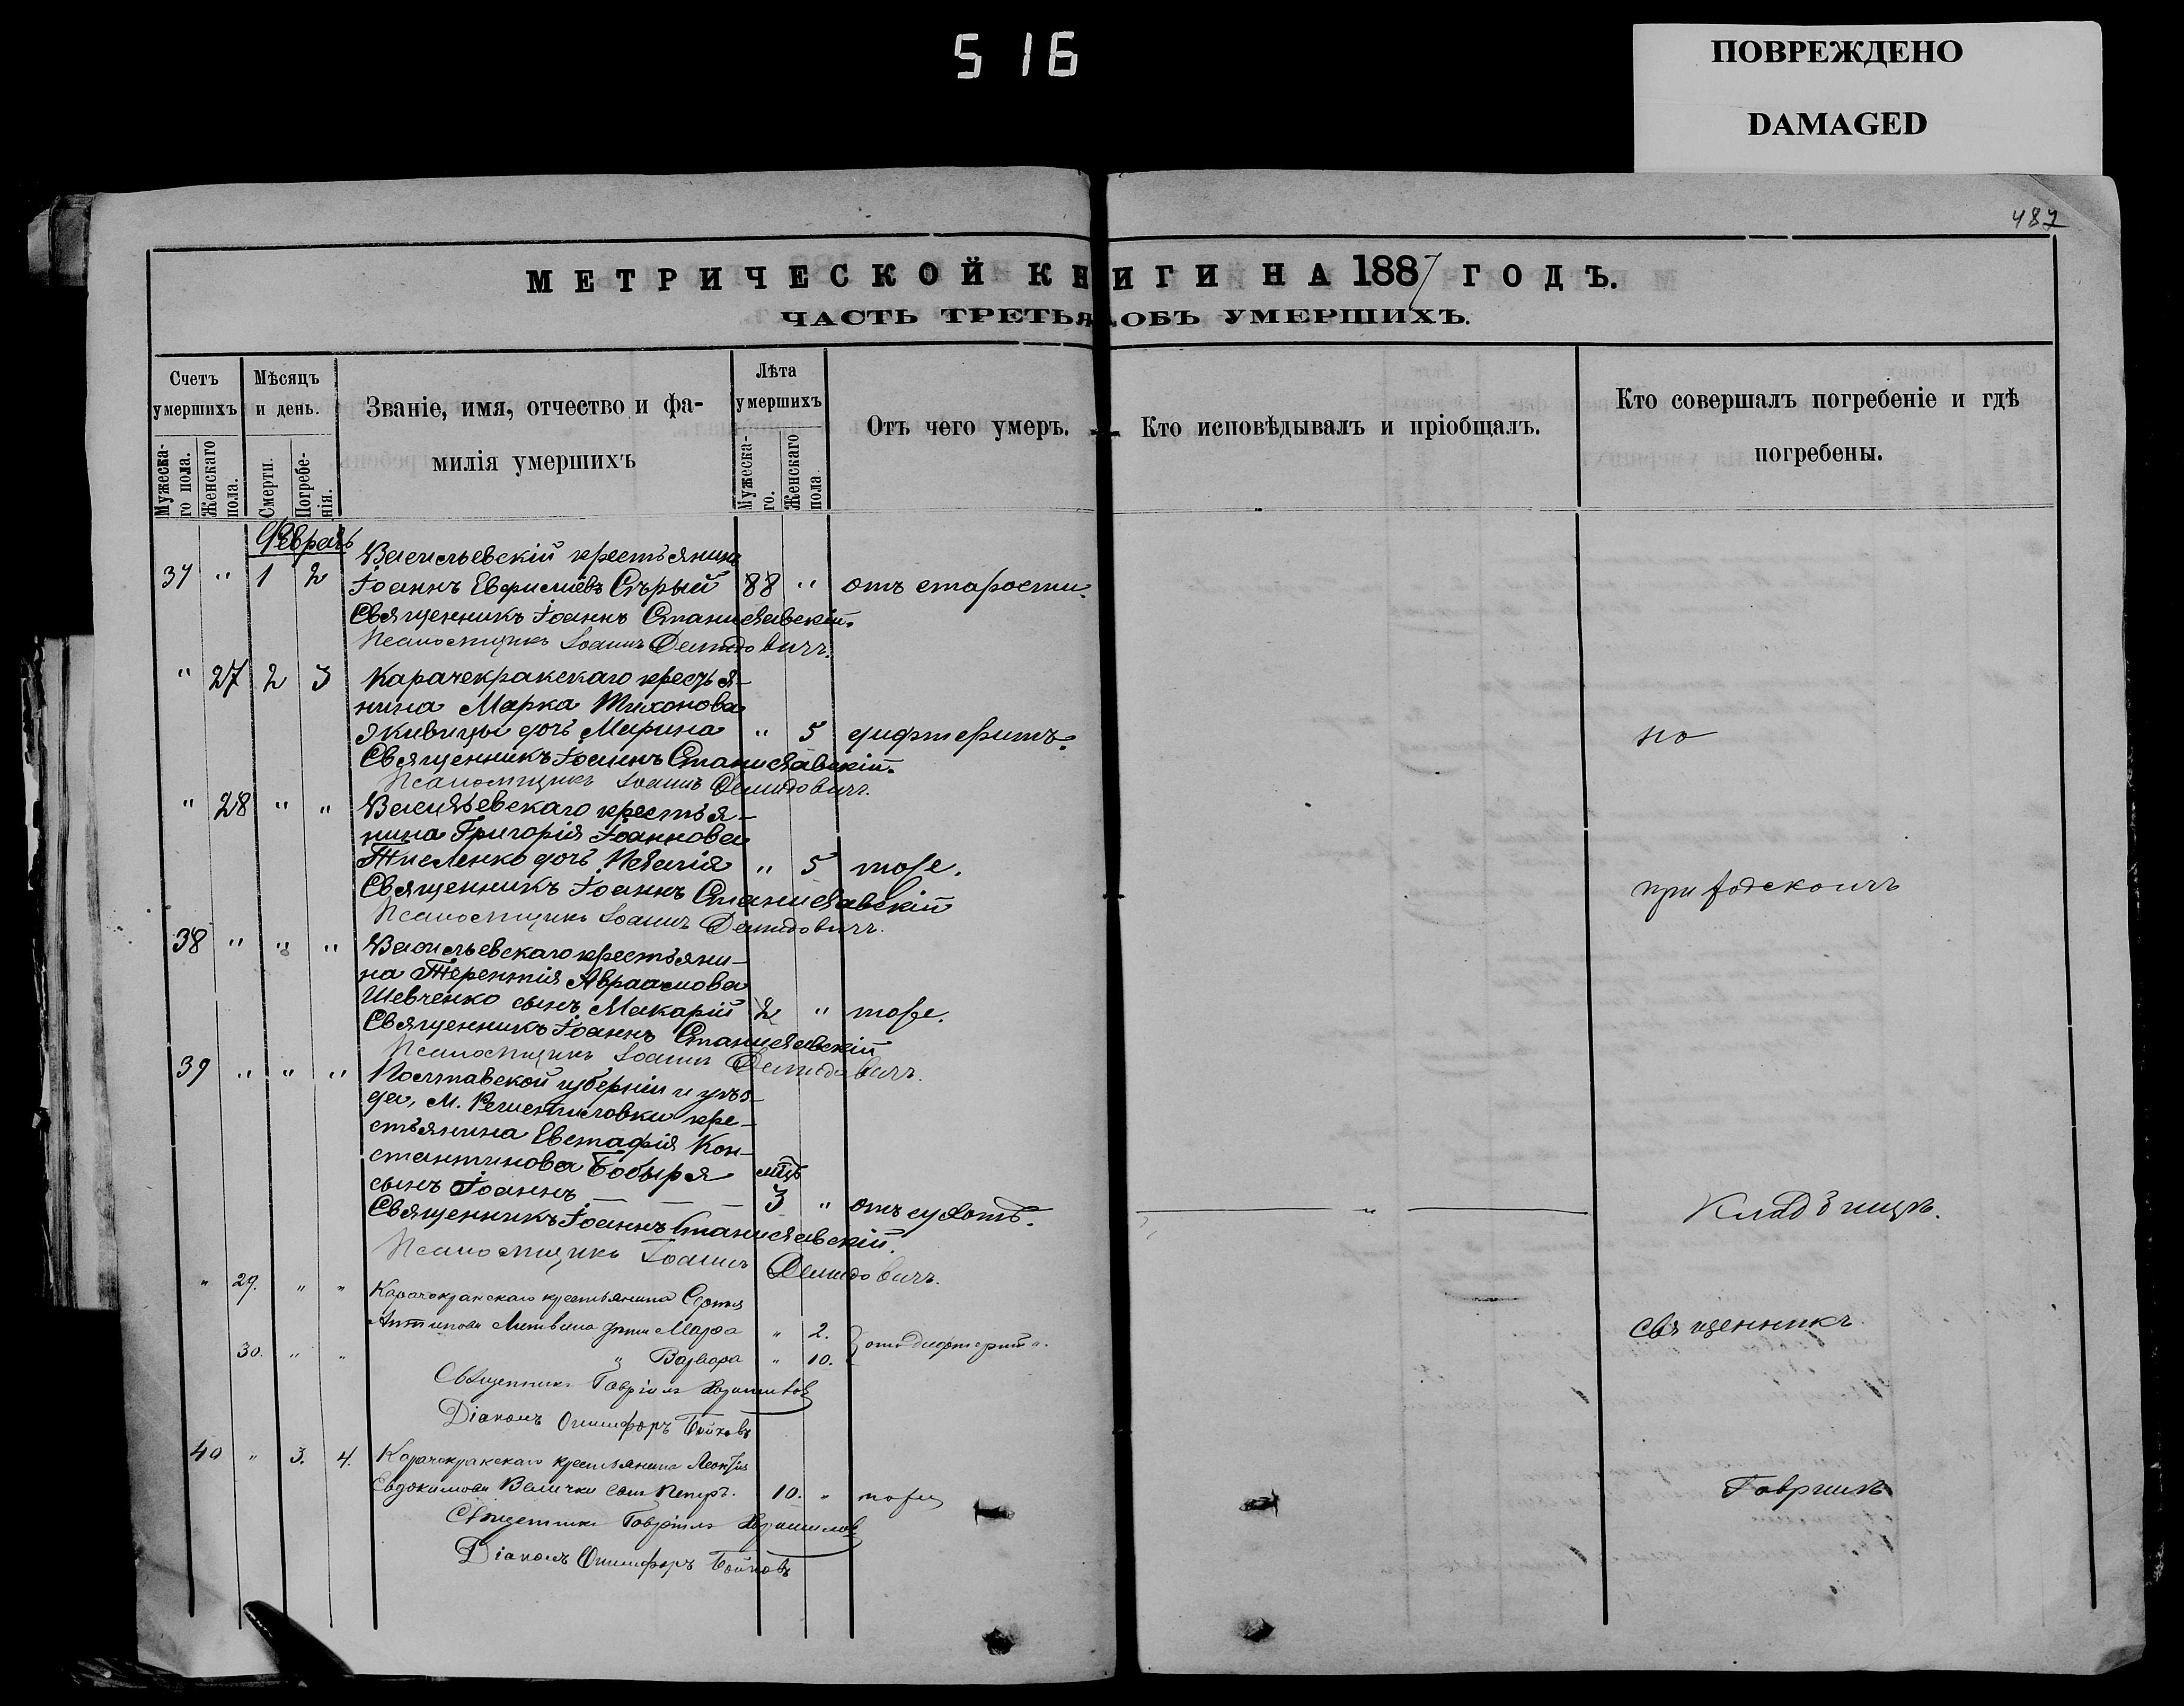 516
ПОВРЕЖДЕНО
DAMAGED
487
МЕТРИЧЕСКОЙ КНИГИ НА 1887 ГОДЪ.
ЧАСТЬ ТРЕТЬЯ ОБЪ УМЕРШИХЪ.
Счетъ умершихъ
Мужескаго пола.
Женскаго пола.
Мѣсяцъ и день.
Смерти.
Погребенія.
Званіе, имя, отчество и фамилія умершихъ
Лѣта умершихъ
Мужескаго.
Женскаго пола
Отъ чего умеръ.
Кто исповѣдывалъ и пріобщалъ.
Кто совершалъ погребеніе и гдѣ погребены.
Февраль
Васильевскій крестьянинъ
37 " 1 2 Іоаннъ Сѣрый 88 " отъ старости.
Священникъ Іоаннъ Станиславскій.
Псаломщикъ Іоаннъ Демидовичъ.
" 27 2 3 Карачекракскаго крестья-
нина Марка Тихонова
дочь Марина " 5 дифтеритъ.
Священникъ Іоаннъ Станиславскій.
Псаломщикъ Іоаннъ Демидовичъ.
" 28 " " Васильевскаго крестья-
нина Григорія Іоаннова
дочь " 5 тоже.
Священникъ Іоаннъ Станиславскій
Псаломщикъ Іоаннъ Демидовичъ.
38 " " " Васильевскаго крестьяни-
на Терентія Авраамова
Шевченко сынъ Макарій 2 " тоже.
Священникъ Іоаннъ Станиславскій
Псаломщикъ Іоаннъ Демидовичъ.
39 " " " Полтавской губерніи и уѣз-
да, м. Решетиловки кре-
стьянина Евстафія Кон-
стантинова Бобыря мцъ
сынъ Іоаннъ 3 " отъ сухотъ.
Священникъ Іоаннъ Станиславскій.
Псаломщикъ Іоаннъ Демидовичъ.
" 29. " " Карачекракскаго крестьянина Сергія
Антипова Литвина дѣти Марфа " 2.
30. " " " Варвара " 10. отъ дифтерита.
Священникъ Гавріилъ
Діаконъ Онисифоръ Бойковъ
40 " 3. 4. Карачекракскаго крестьянина Леонтія
Евдокимова Величко сынъ Петръ. 10. " тоже
Священникъ Гавріилъ
Діаконъ Онисифоръ Бойковъ
на
приходскомъ
Кладбищѣ.
Священникъ
Гавріилъ